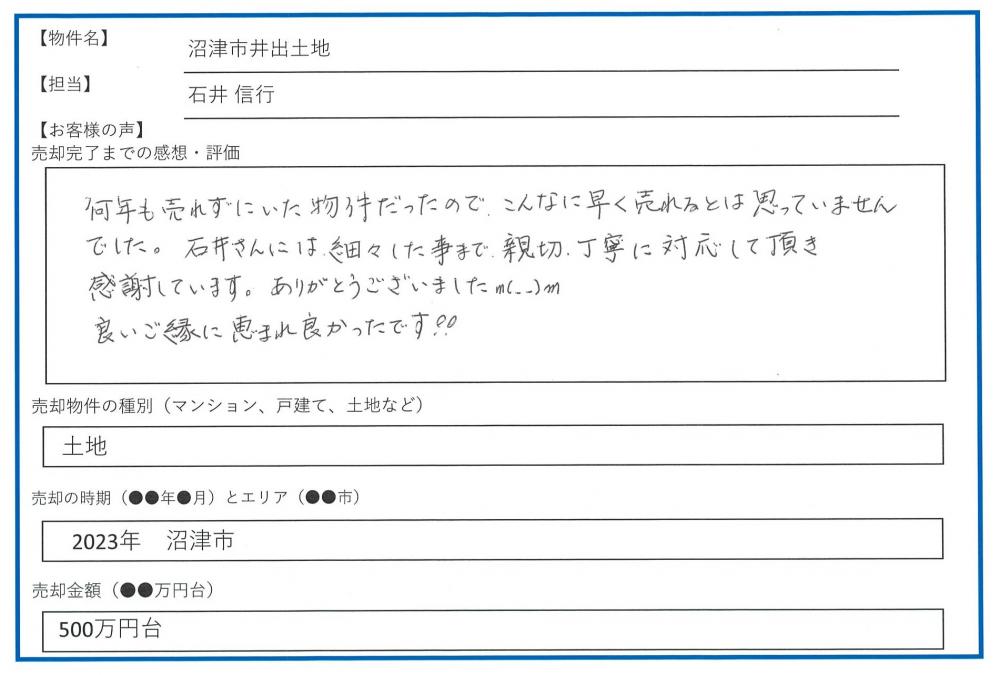 【物件名】
沼津市井出土地
【担当】
石井 信行
【お客様の声】
売却完了までの感想・評価
何年も売れずにいた物件だったので、こんなに早く売れるとは思っていません
でした。石井さんには、細々した事まで、親切、丁寧に対応して頂き
感謝しています。ありがとうございましたm(_ _)m
良いご縁に恵まれ良かったです!!
売却物件の種別（マンション、戸建て、土地など）
土地
売却の時期（●●年●月）とエリア（●●市）
2023年　沼津市
売却金額（●●万円台）
500万円台